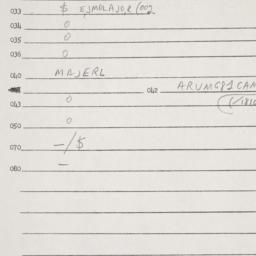 033 $ EJMPLAJOR (002
034 0
035 0
036 0
040 MAJERL
042 ARUMC81CAM
043 0
050 0
070 -/$
080 -